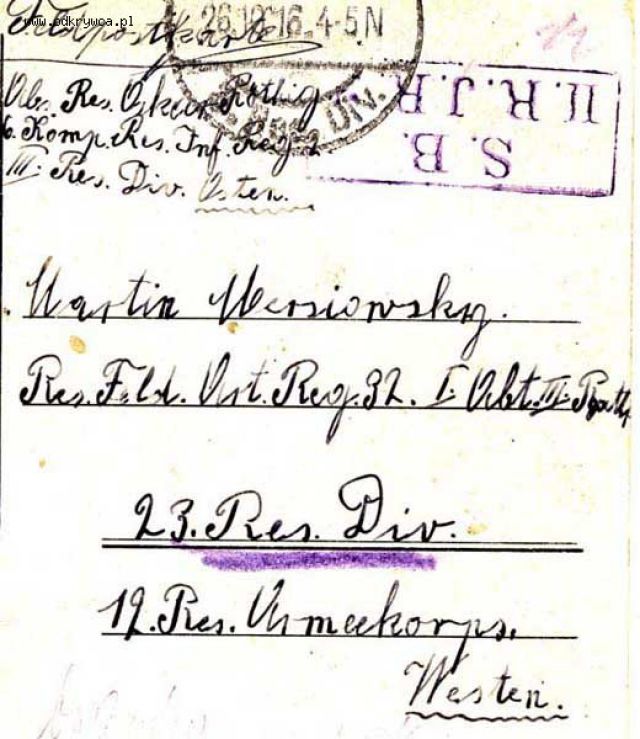 www.odkrywca.pl
Feldpostkarte
26.12.16. 4-5N
RES. DIV.
S. B.
II. R. J. R.
Abs. Res. Oskar Röthig
6. Komp. Res. Inf. Reg. 2.
III. Res. Div. Osten.
Martin Mersiowsky.
Res. Feld. Art. Reg. 32. I. Abt. III. Battr.
23. Res. Div.
12. Res. Armeekorps.
Westen.